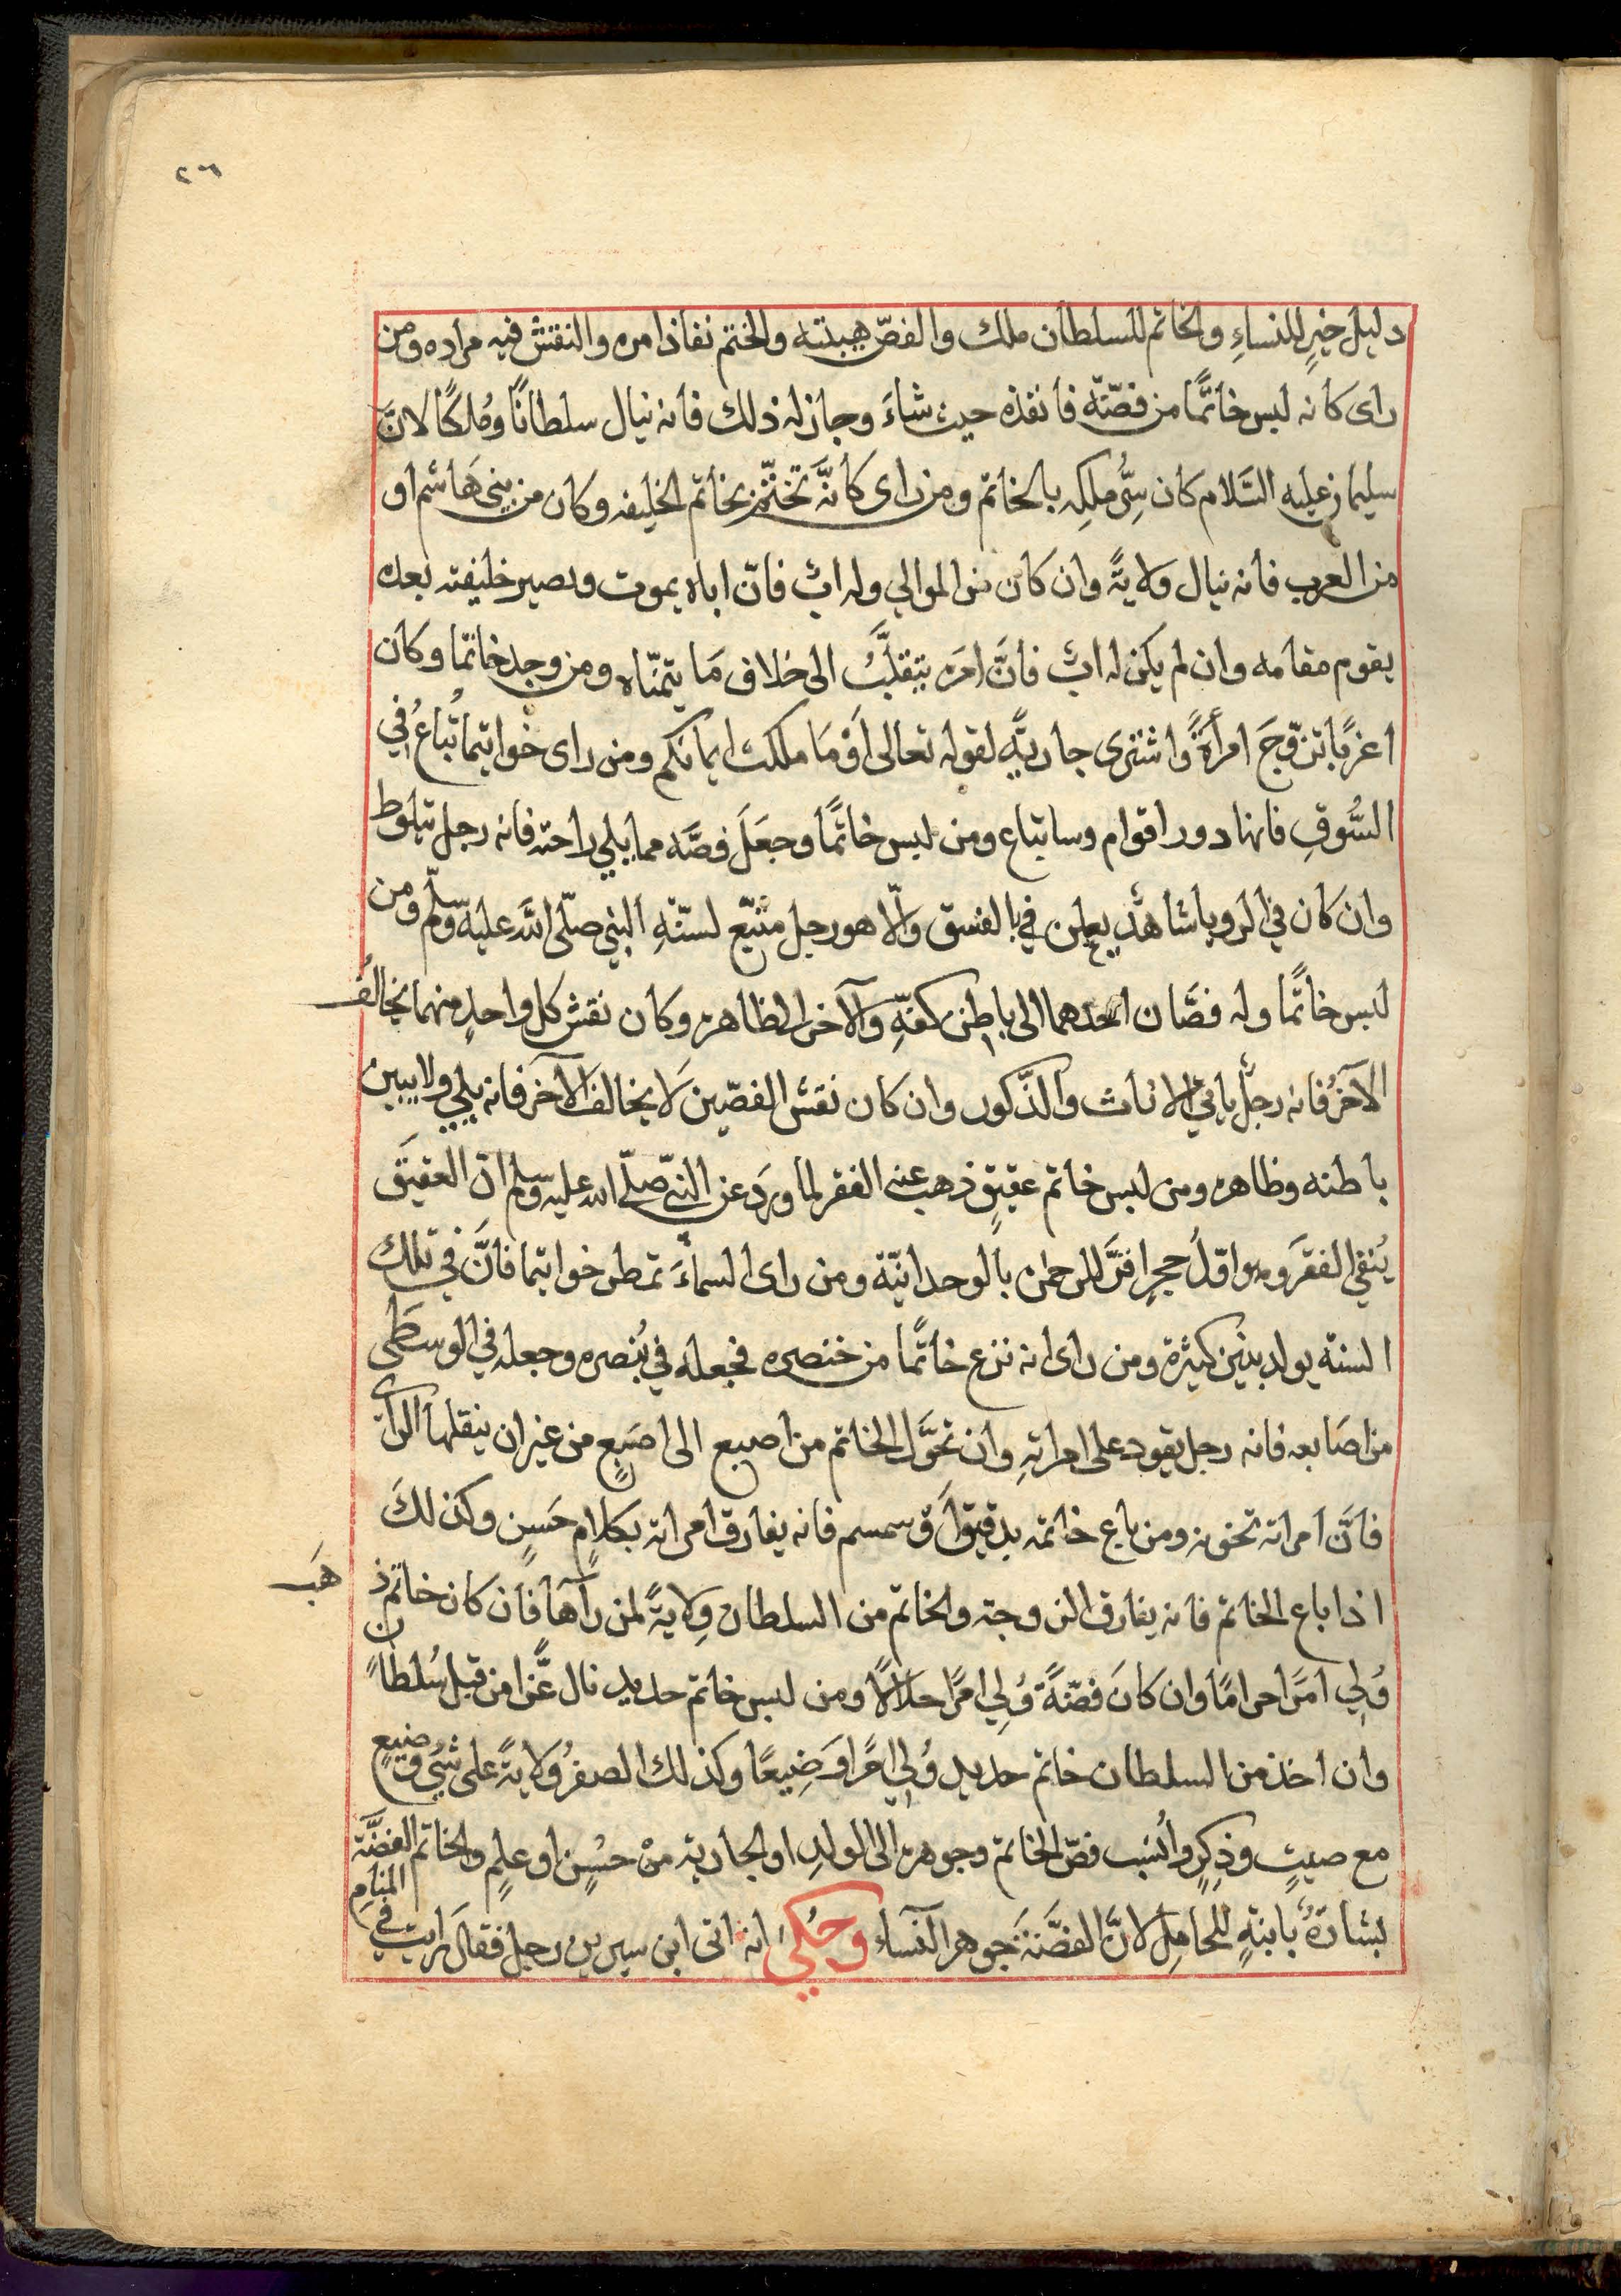 ٢٦
دليل خيرٍ للنساءِ والخاتم للسلطان ملك والفصّ هيبته والختم نفاذ امره والنقش فيه مراده ومن
راى كانه لبس خاتمًا من فضّة فانفذه حيث شاءَ وجاز له ذلك فانه ينال سلطانًا ومُلكًا لانَّ
سليمان عليه السَّلام كان سِرُّ ملكِه بالخاتم ومن راى كانَّه تختّم بخاتم الخليفه وكان من بنى هَاشم او
من العرب فانه ينال ولايةً وان كان من الموالي وله ابٌ فانّ اباه يموت ويصير خليفته بعده
يقوم مقامه وان لم يكن له ابٌ فانَّ امرَه ينقلبُ الى خلاف مَا يتمنّاه ومن وجد خاتما وكان
اعزبًا تزوّجَ امرأةً واشترى جاريةً لقوله تعالى اَوْ مَا ملكت ايمانكم ومن راى خواتيما تُباعُ في
السُّوقِ فانها دور اقوام وسا تباع ومن لبس خاتمًا وجعَلَ فصَّه مما يلي راحته فانه رجل يتلوط
وان كان في الرويا شاهدٌ يعلن في بالفسق والّا هو رجل متبّع لسنّةِ النبي صلّى الله عليه وسلّم ومن
لبس خاتمًا وله فصَّان احدهما الى باطن كفّهِ والآخر الى ظاهره وكان نقش كل واحدٍ منهما يخالفُ
الآخرُ فانه رجلٌ ياتي الاناث والذّكور وان كان نقش الفصّين لَا يخالف الآخر فانه يلي ولا يبين
باطنه وظاهره ومن لبس خاتم عقيقٍ ذهب عنه الفقر لما ورَد عن النبّي صلّى الله عليه وسلم ان العقيق
يُنفي الفقرَ وهو اوّلُ حجرٍ اقرَّ للرحمن بالوحدانيّة ومن راى السماءَ تمطر خواتيما فانَّ في تلك
السنة يولد بنين كثيرة ومن راى انه نزع خاتمًا من خنصره فجعله في بُنصره وجعله في الوسطى
من اصَابعه فانه رجل يقود على امراتهِ وان تحوَّل الخاتم من اصبع الى اصَبعٍ من غير ان ينقلها الرآى
فانَّ امراته تخونه ومن باع خاتمه بدقيق اَوْ سمسم فانه يفارق امراته بكلامٍ حَسِنٍ وكذلكَ
اذا باع الخاتم فانه يفارق الزوجته والخاتم من السلطان وِلايةً لمن رآها فان كان خاتم ذهَب
وُلِي امرًا حرامًا وان كانَ فضّةً وُلِي امرًا حلالًا ومن لبس خاتم حديد نال عَّزا من قبل سُلطانً
وان اخذ من السلطان خاتم حديد وُلِي امرًا وَضِيعًا وكذلك الصفرُ وَلايةً على شئٍ وضيعٍ
مع صيتٍ وذِكرٍ وانُسِب فصّ الخاتم وجوهره الى الولدِ او الجارية منْ حسُنٍ او علٍم والخاتم الفضَّة
بشارةٌ بابنةٍ للحامِل لانَّ الفضَّةَ جوهر النساء وحُكي انه اتى ابن سيرين رجل فقالَ رايت في المنامِ